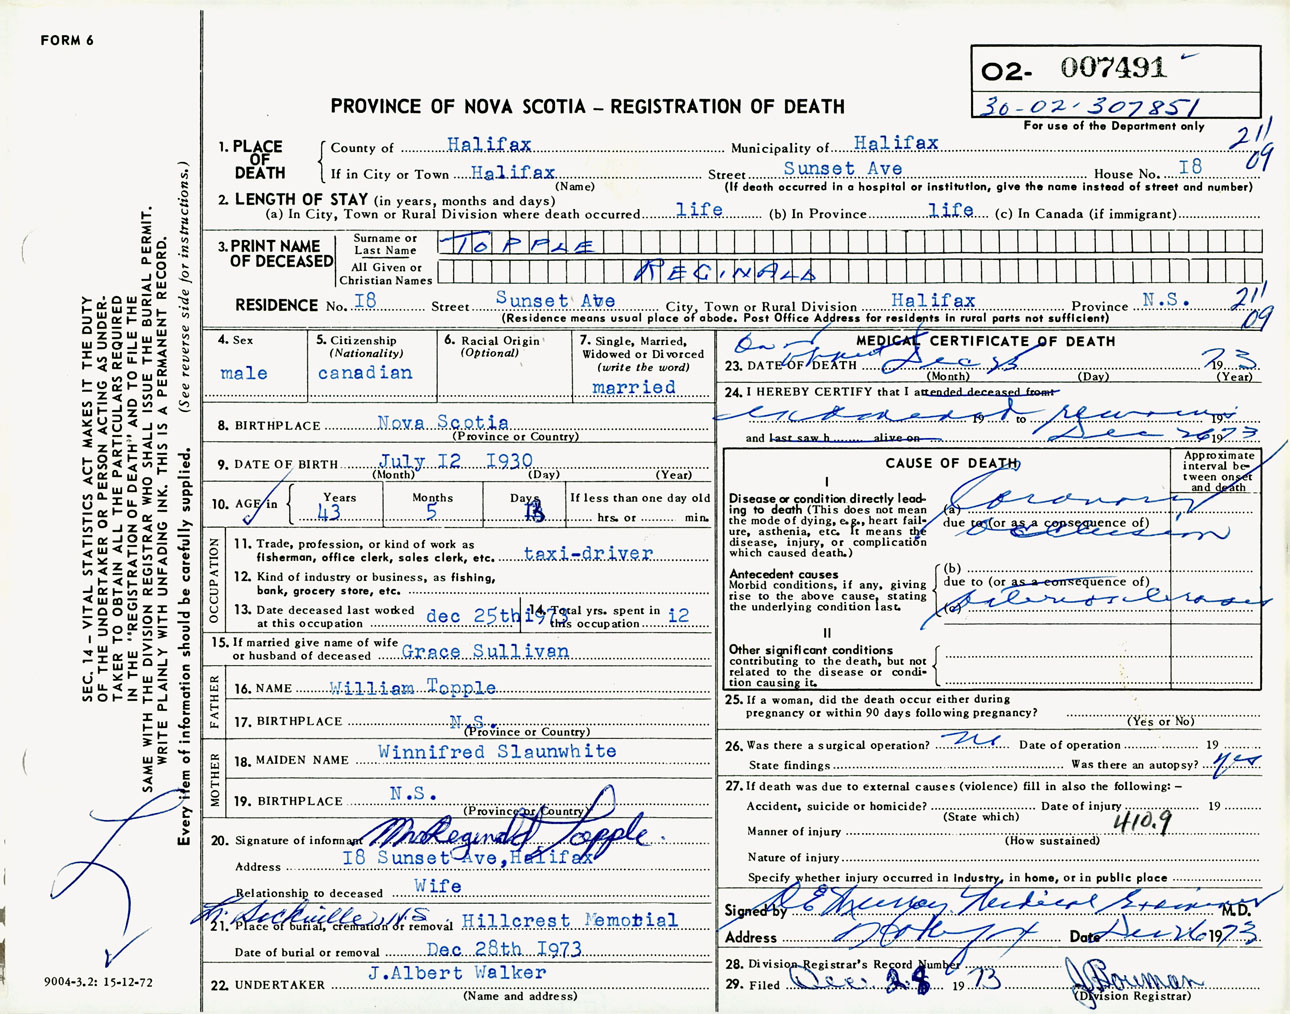 FORM 6
O2- 007491
30-02-307851
For use of the Department only
PROVINCE OF NOVA SCOTIA – REGISTRATION OF DEATH
211
09
1. PLACE OF DEATH
County of Halifax Municipality of Halifax
If in City or Town Halifax Street Sunset Ave House No. I8
(Name) (If death occurred in a hospital or institution, give the name instead of street and number)
2. LENGTH OF STAY (in years, months and days)
(a) In City, Town or Rural Division where death occurred life (b) In Province life (c) In Canada (if immigrant)
3. PRINT NAME OF DECEASED
Surname or Last Name TOPPLE
All Given or Christian Names REGINALD
RESIDENCE No. I8 Street Sunset Ave City, Town or Rural Division Halifax Province N.S.
211
09
(Residence means usual place of abode. Post Office Address for residents in rural parts not sufficient)
4. Sex
male
5. Citizenship
(Nationality)
canadian
6. Racial Origin
(Optional)
7. Single, Married, Widowed or Divorced
(write the word)
married
8. BIRTHPLACE Nova Scotia
(Province or Country)
9. DATE OF BIRTH July I2 I930
(Month) (Day) (Year)
10. AGE in
Years Months Days If less than one day old
43 5 hrs. or min.
OCCUPATION
11. Trade, profession, or kind of work as
fisherman, office clerk, sales clerk, etc. taxi-driver
12. Kind of industry or business, as fishing,
bank, grocery store, etc.
13. Date deceased last worked
at this occupation dec 25th I973
14. Total yrs. spent in
this occupation I2
15. If married give name of wife
or husband of deceased Grace Sullivan
FATHER
16. NAME William Topple
17. BIRTHPLACE N.S.
(Province or Country)
MOTHER
18. MAIDEN NAME Winnifred Slaunwhite
19. BIRTHPLACE N.S.
(Province or Country)
20. Signature of informant Mrs Reginald Topple.
Address I8 Sunset Ave, Halifax
Relationship to deceased Wife
Sackville N.S
21. Place of burial, cremation or removal Hillcrest Memorial
Date of burial or removal Dec 28th I973
J.Albert Walker
22. UNDERTAKER
(Name and address)
MEDICAL CERTIFICATE OF DEATH
On or about
23. DATE OF DEATH Dec 25 1973
(Month) (Day) (Year)
24. I HEREBY CERTIFY that I attended deceased from
examined 19 to remains 19
and last saw h alive on Dec 26 1973
CAUSE OF DEATH
Approximate interval between onset and death
I
Disease or condition directly leading to death (This does not mean the mode of dying, e.g., heart failure, asthenia, etc. It means the disease, injury, or complication which caused death.)
(a) Coronary
due to (or as a consequence of)
occlusion
Antecedent causes
Morbid conditions, if any, giving rise to the above cause, stating the underlying condition last.
(b)
due to (or as a consequence of)
(c) arteriosclerosis
II
Other significant conditions
contributing to the death, but not related to the disease or condition causing it.
25. If a woman, did the death occur either during
pregnancy or within 90 days following pregnancy?
(Yes or No)
26. Was there a surgical operation? no Date of operation 19
State findings Was there an autopsy? yes
27. If death was due to external causes (violence) fill in also the following: –
Accident, suicide or homicide? Date of injury 19
(State which)
410.9
Manner of injury
(How sustained)
Nature of injury
Specify whether injury occurred in industry, in home, or in public place
Signed by Murray Medical Examiner M.D.
Address Halifax Date Dec 26 1973
28. Division Registrar's Record Number
29. Filed Dec. 28 1973
(Division Registrar)
SEC. 14 – VITAL STATISTICS ACT MAKES IT THE DUTY
OF THE UNDERTAKER OR PERSON ACTING AS UNDER-
TAKER TO OBTAIN ALL THE PARTICULARS REQUIRED
IN THE "REGISTRATION OF DEATH" AND TO FILE THE
SAME WITH THE DIVISION REGISTRAR WHO SHALL ISSUE THE BURIAL PERMIT.
WRITE PLAINLY WITH UNFADING INK. THIS IS A PERMANENT RECORD.
Every item of information should be carefully supplied. (See reverse side for instructions.)
9004-3.2: 15-12-72